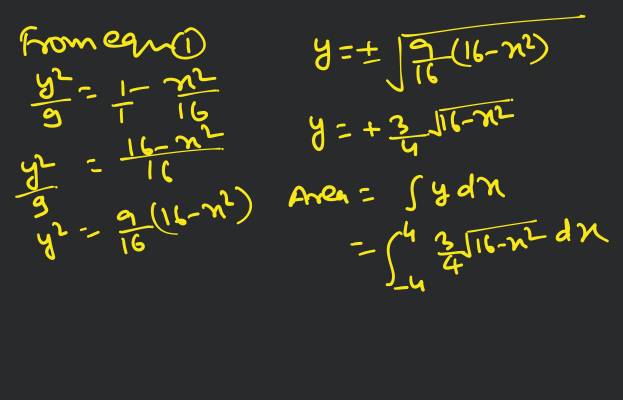 From eqn ①
y²/9 = 1/1 - x²/16
y²/9 = 16-x²/16
y² = 9/16 (16-x²)
y = ± √(9/16 (16-x²))
y = + 3/4 √16-x²
Area = ∫ y dx
= ∫₋₄⁴ 3/4 √16-x² dx